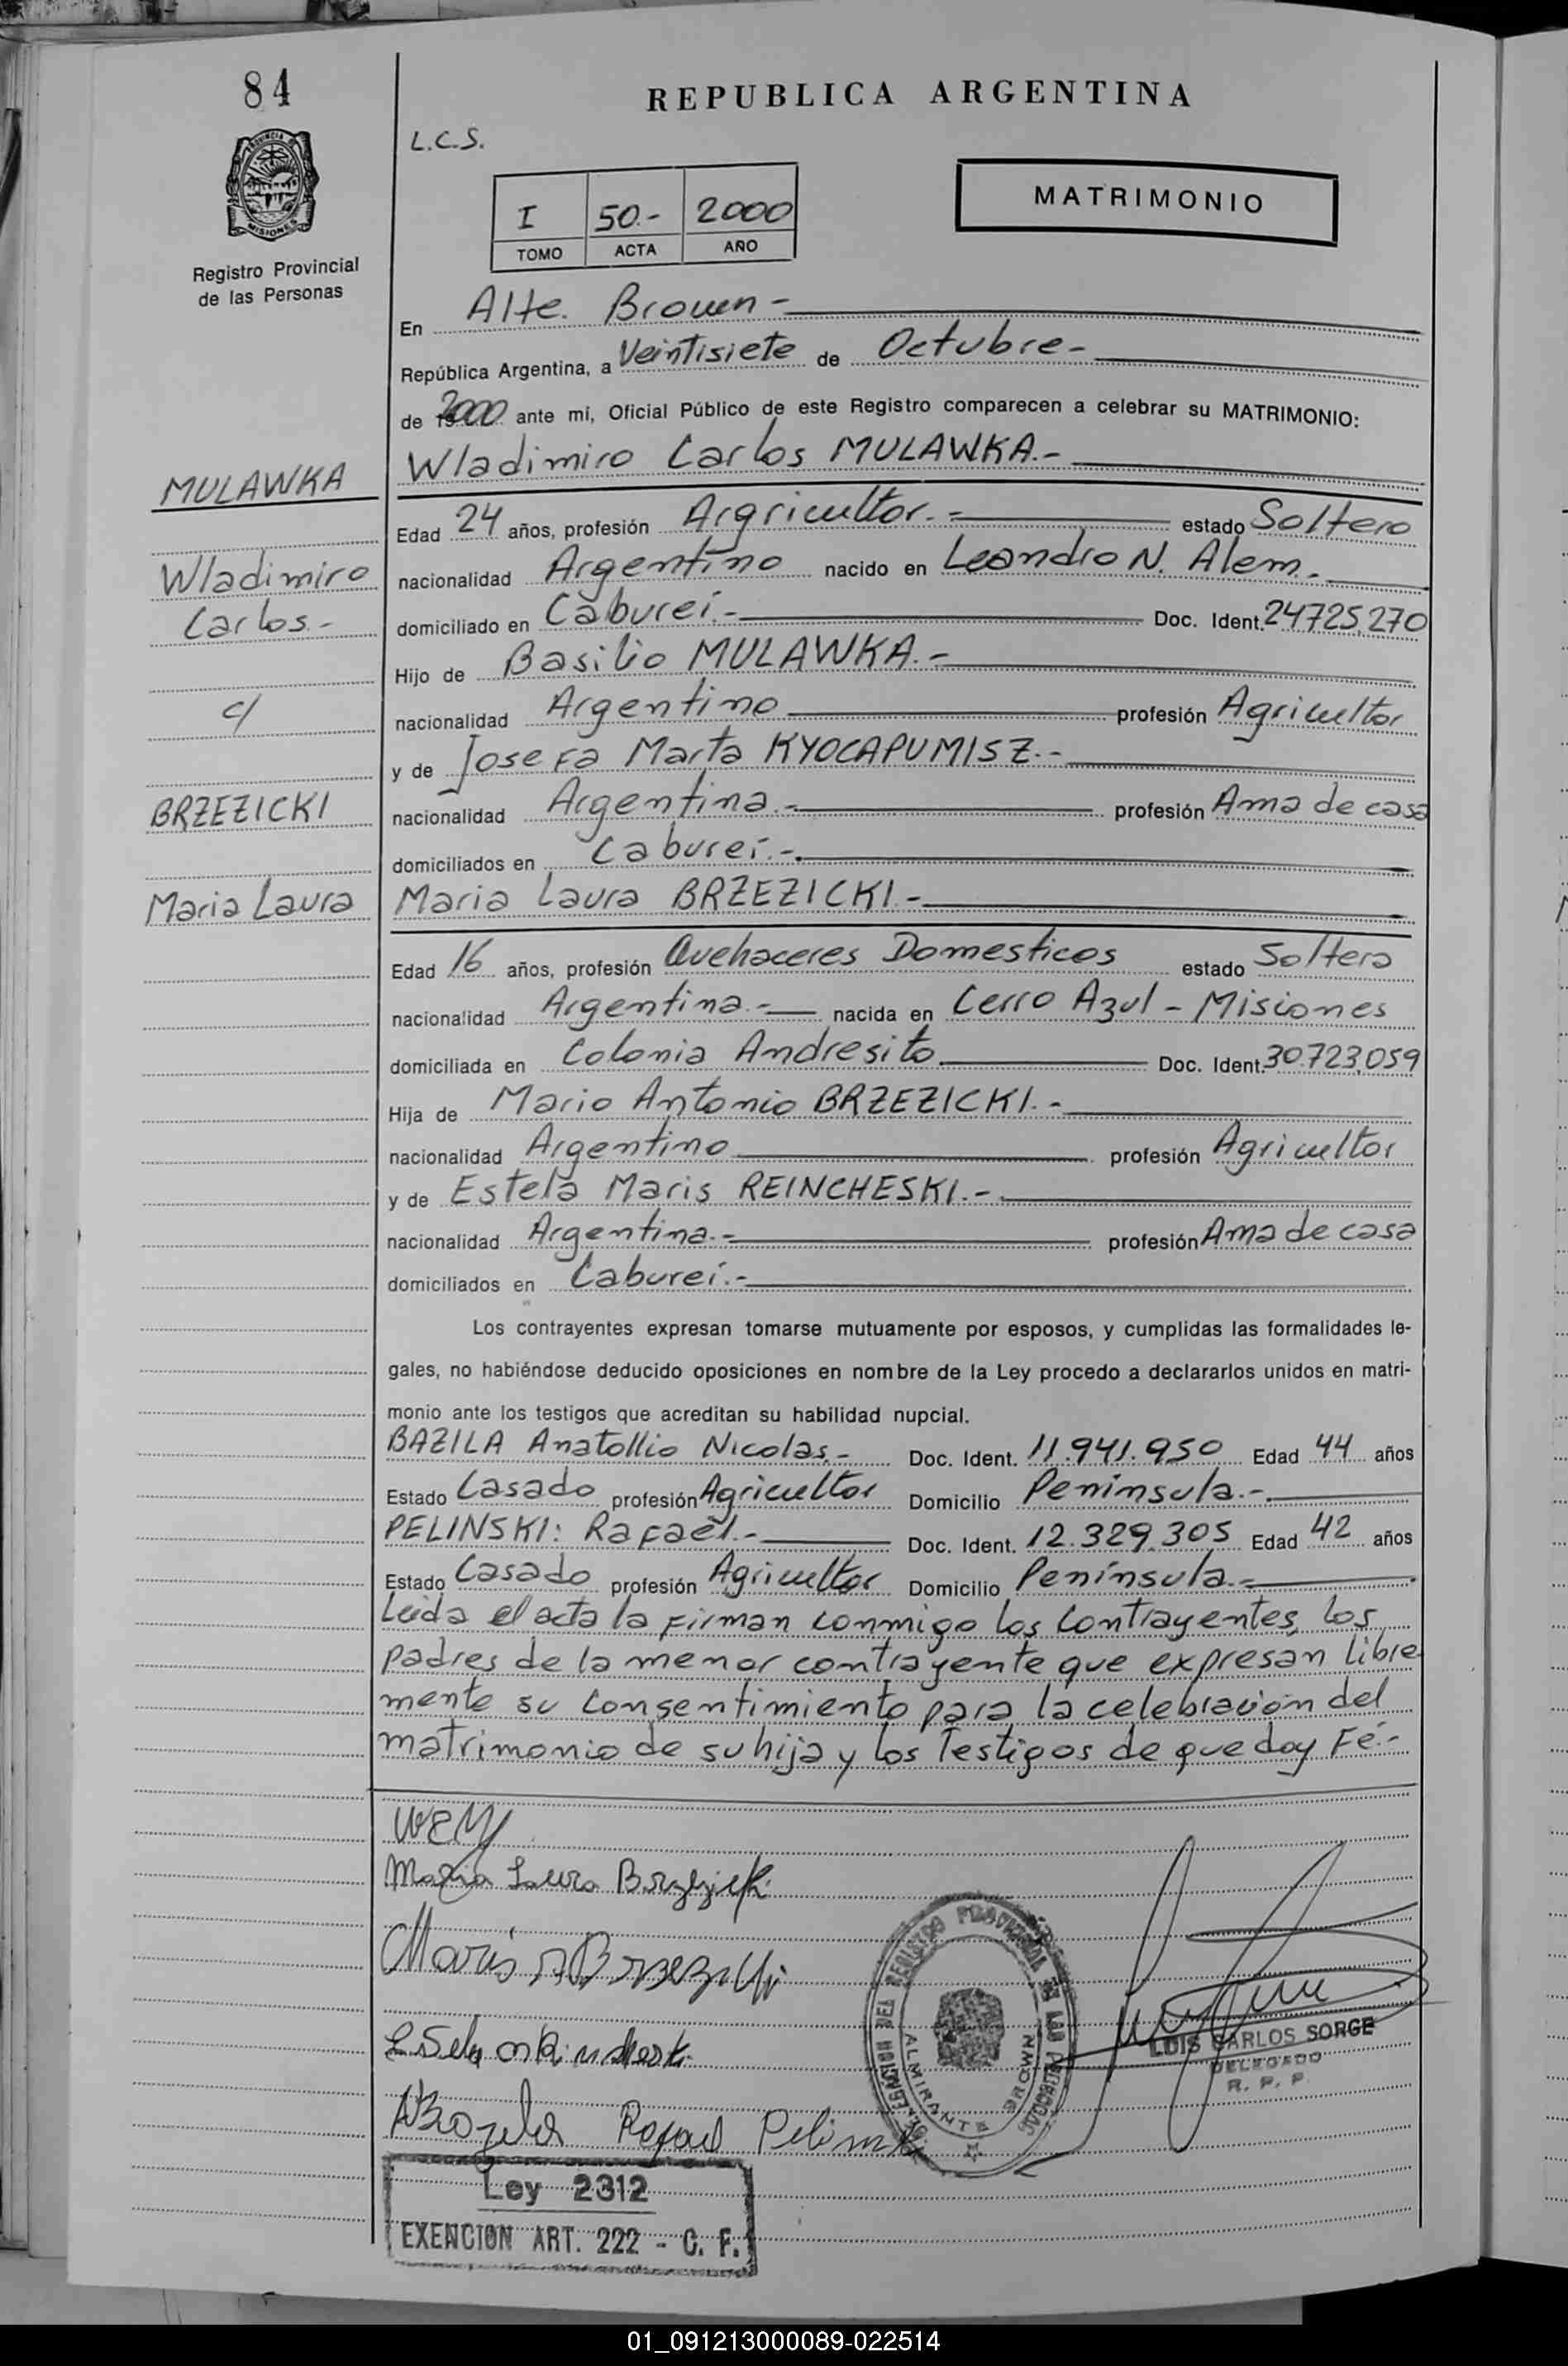 84
REPUBLICA ARGENTINA
L.C.S.
MATRIMONIO
I 50.- 2000
TOMO ACTA AÑO
MISIONES
Registro Provincial
de las Personas
En Alte. Brown -
República Argentina, a Veintisiete de Octubre -
de 2000 ante mí, Oficial Público de este Registro comparecen a celebrar su MATRIMONIO:
Wladimiro Carlos MULAWKA.-
MULAWKA
Edad 24 años, profesión Argricultor.- estado Soltero
Wladimiro
nacionalidad Argentino nacido en Leandro N. Alem.-
Carlos.-
domiciliado en Caburei.- Doc. Ident. 24725,270
Hijo de Basilio MULAWKA.-
c/
nacionalidad Argentino profesión Agricultor
y de Josefa Marta KYOCAPUMISZ.-
BRZEZICKI
nacionalidad Argentina.- profesión Ama de casa
domiciliados en Caburei.-
Maria Laura
Maria Laura BRZEZICKI.-
Edad 16 años, profesión Quehaceres Domesticos estado Soltera
nacionalidad Argentina.- nacida en Cerro Azul - Misiones
domiciliada en Colonia Andresito Doc. Ident. 30.723,059
Hija de Mario Antonio BRZEZICKI.-
nacionalidad Argentino profesión Agricultor
y de Estela Maris REINCHESKI.-
nacionalidad Argentina.- profesión Ama de casa
domiciliados en Caburei.-
Los contrayentes expresan tomarse mutuamente por esposos, y cumplidas las formalidades le-
gales, no habiéndose deducido oposiciones en nombre de la Ley procedo a declararlos unidos en matri-
monio ante los testigos que acreditan su habilidad nupcial.
BAZILA Anatollio Nicolas.- Doc. Ident. 11.941.950 Edad 44 años
Estado Casado profesión Agricultor Domicilio Península.-
PELINSKI: Rafael.- Doc. Ident. 12.329.305 Edad 42 años
Estado Casado profesión Agricultor Domicilio Península.-
Leida el acta la firman conmigo los contrayentes, los
padres de la menor contrayente que expresan libre
mente su consentimiento para la celebración del
matrimonio de su hija y los Testigos de que doy Fé.-
Maria Laura Brzezicki
Rafael Pelinski
REGISTRO PROVINCIAL DE LAS PERSONAS
ALMIRANTE BROWN
LUIS CARLOS SORGE
DELEGADO
R. P. P.
Ley 2312
EXENCION ART. 222 - C. F.
01_091213000089-022514